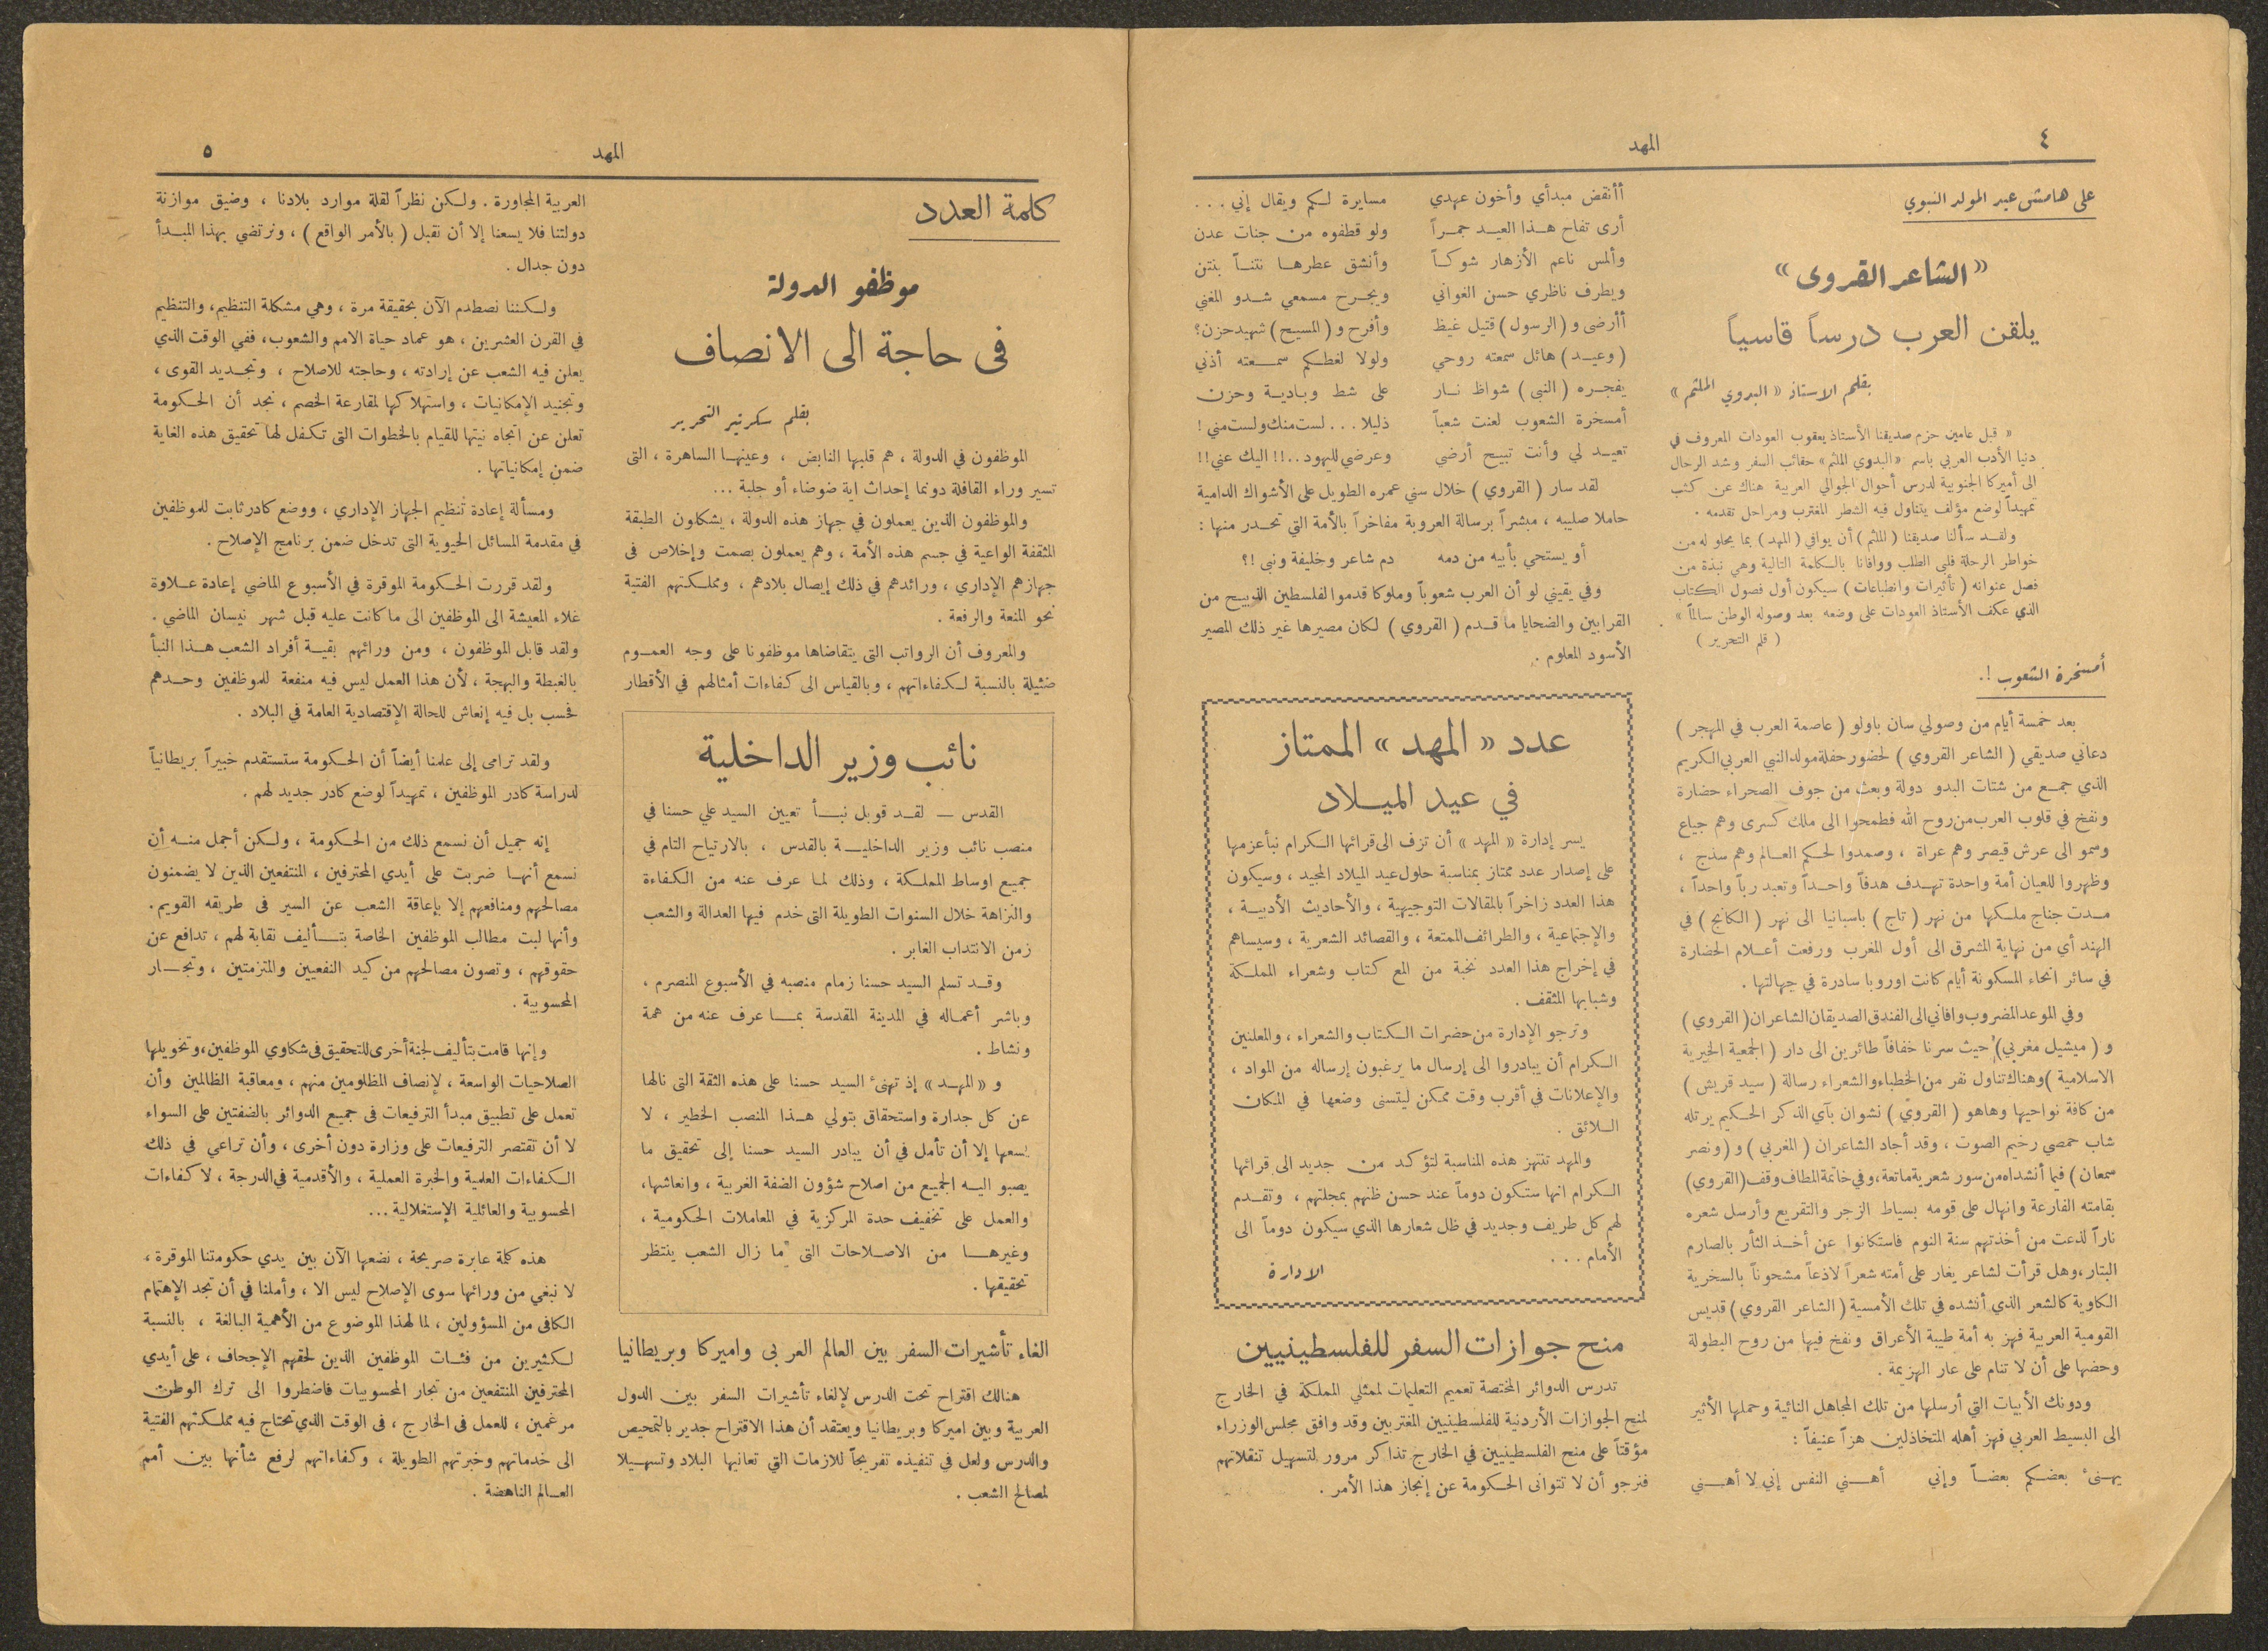 ٤
المهد
على هامش عيد المولد النبوي
«الشاعر القروى»
يلقن العرب درساً قاسياً
بقلم الاستاذ «البدوي الملثم»
« قبل عامين حزم صديقنا الأستاذ يعقوب العودات المعروف في
دنيا الأدب العربي باسم «البدوي الملثم» حقائب السفر وشد الرحال
الى أميركا الجنوبية لدرس أحوال الجوالي العربية هناك عن كثب
تمهيداً لوضع مؤلف يتناول فيه الشطر المغترب ومراحل تقدمه .
ولقـد سألنا صديقنا (الملثم) أن يوافي (المهد) بما يحلو له من
خواطر الرحلة فلبى الطلب ووافانا بالكلمة التالية وهي نبذة من
فصل عنوانه (تأثيرات وانطباعات) سيكون أول فصول الكتاب
الذي عكف الأستاذ العودات على وضعه بعد وصوله الوطن سالماً »
( قلم التحرير )
أمسخرة الشعوب !.
بعد خمسة أيام من وصولي سان باولو ( عاصمة العرب في المهجر )
دعاني صديقي ( الشاعر القروي ) لحضور حفلة مولد النبي العربي الكريم
الذي جمـع من شتات البدو دولة وبعث من جوف الصحراء حضارة
ونفخ في قلوب العرب من روح الله فطمحوا الى ملك كسرى وهم جياع
وسمو الى عرش قيصر وهم عراة ، وصمدوا لحكم العـالم وهم سذج ،
وظهروا للعيان أمة واحدة تهـدف هدفاً واحـداً وتعبد رباً واحداً ،
مـدت جناح ملكها من نهر ( تاج ) باسبانيا الى نهر ( الكانج ) في
الهند أي من نهاية المشرق الى أول المغرب ورفعت أعـلام الحضارة
في سائر انحاء المسكونة أيام كانت اوروبا سادرة في جهالتها .
وفي الموعد المضروب وافاني الى الفندق الصديقان الشاعران ( القروي )
و ( ميشيل مغربي ) حيث سرنا خفافاً طائرين الى دار ( الجمعية الخيرية
الاسلامية ) وهناك تناول نفر من الخطباء والشعراء رسالة ( سيد قريش )
من كافة نواحيها وهاهو ( القروي ) نشوان بآي الذكر الحكيم يرتله
شاب حمصي رخيم الصوت ، وقد أجاد الشاعران ( المغربي ) و ( ونصر
سمعان ) فيما أنشداه من سور شعرية ماتعة ، وفي خاتمة المطاف وقف ( القروي )
بقامته الفارعة وانهال على قومه بسياط الزجر والتقريع وأرسل شعره
ناراً لذعت من أخذتهم سنة النوم فاستكانوا عن أخـذ الثأر بالصارم
البتار ، وهل قرأت لشاعر يغار على أمته شعراً لاذعاً مشحوناً بالسخرية
الكاوية كالشعر الذي أنشده في تلك الأمسية ( الشاعر القروي ) قديس
القومية العربية فهز به أمة طيبة الأعراق ونفخ فيها من روح البطولة
وحضها على أن لا تنام على عار الهزيمة .
ودونك الأبيات التي أرسلها من تلك المجاهل النائية وحملها الأثير
الى البسيط العربي فهز أهله المتخاذلين هزاً عنيفاً :
يهـنئ بعضـكم بعضـاً وإني أهـني النفس إني لا أهـني
أأنقض مبدأي وأخون عهدي مسايرة لـكم ويقال إني ...
أرى تفاح هـذا العيـد جمـراً ولو قطفوه من جنات عدن
وألمس ناعم الأزهار شوكـاً وأنشق عطرهـا نتنـاً بنتن
ويطرف ناظري حسن الغواني ويجـرح مسمعي شـدو المغني
أأرضى و ( الرسول ) قتيل غيظ وأفرح و ( المسيح ) شهيد حزن ؟
( وعيـد ) هائل سمعته روحي ولولا لغطـكم سمـعته أذني
يفجـره ( النبي ) شواظ نـار على شط وباديـة وحزن
أمسخرة الشعوب لعنت شعباً ذليلا ... لست منك ولست مني !
تعيـد لي وأنت تبيـح أرضي وعرضي لليهود ..!! اليك عني !!
لقد سار ( القروي ) خلال سني عمره الطويل على الأشواك الدامية
حاملا صليبه ، مبشراً برسالة العروبة مفاخراً بالأمة التي تحـدر منها :
أو يستحي بأبيه من دمه دم شاعر وخليفة ونبي !؟
وفي يقيني لو أن العرب شعوباً وملوكا قدموا لفلسطين الذبيح من
القرابين والضحايا ما قـدم ( القروي ) لكان مصيرها غير ذلك المصير
الأسود المعلوم .
عدد «المهد» الممتاز
في عيد الميـلاد
يسر إدارة « المهد » أن تزف الى قرائها الـكرام نبأ عزمها
على إصدار عدد ممتاز بمناسبة حلول عيد الميلاد المجيد ، وسيكون
هذا العدد زاخراً بالمقالات التوجيهية ، والأحاديث الأدبيـة ،
والإجتماعية ، والطرائف الممتعة ، والقصائد الشعرية ، وسيساهم
في إخراج هذا العدد نخبة من المع كتاب وشعراء المملـكة
وشبابها المثقف .
وترجو الإدارة من حضرات الـكتاب والشعراء ، والمعلنين
الـكرام أن يبادروا الى إرسال ما يرغبون إرساله من المواد ،
والإعلانات في أقرب وقت ممكن ليتسنى وضعها في المكان
الـلائق .
والمهد تنتهز هذه المناسبة لتؤكد من جديد الى قرائها
الـكرام انها ستكون دوماً عند حسن ظنهم بمجلتهم ، وتقـدم
لهم كل طريف وجديد في ظل شعارها الذي سيكون دوماً الى
الأمام ...
الادارة
منح جوازات السفر للفلسطينيين
تدرس الدوائر المختصة تعميم التعليمات لممثلي المملكة في الخارج
لمنح الجوازات الأردنية للفلسطينيين المغتربين وقد وافق مجلس الوزراء
مؤقتاً على منح الفلسطينيين في الخارج تذاكر مرور لتسهيل تنقلاتهم
فنرجو أن لا تتوانى الحـكومة عن إنجاز هذا الأمر .
المهد
٥
كلمة العدد
موظفو الدولة
فى حاجة الى الانصاف
بقلم سكرتير التحرير
الموظفون في الدولة ، هم قلبها النابض ، وعينهـا الساهرة ، التى
تسير وراء القافلة دونما إحداث اية ضوضاء أو جلبة ...
والموظفون الذين يعملون في جهاز هذه الدولة ، يشكلون الطبقة
المثقفة الواعية في جسم هذه الأمة ، وهم يعملون بصمت وإخلاص فى
جهازهم الإداري ، ورائدهم في ذلك إيصال بلادهم ، ومملـكتهم الفتية
نحو المنعة والرفعة .
والمعروف أن الرواتب التى يتقاضاها موظفونا على وجه العمـوم
ضئيلة بالنسبة لـكفاءاتهم ، وبالقياس الى كفاءات أمثالهم في الأقطار
نائب وزير الداخلية
القدس ــ لقـد قوبل نبـأ تعيين السيد علي حسنا في
منصب نائب وزير الداخليـة بالقدس ، بالارتياح التام في
جميع اوساط المملـكة ، وذلك لما عرف عنه من الكفاءة
والنزاهة خلال السنوات الطويلة التى خدم فيها العدالة والشعب
زمن الانتداب الغابر .
وقـد تسلم السيد حسنا زمام منصبه في الأسبوع المنصرم ،
وباشر أعمـاله في المدينة المقدسة بمـا عرف عنه من همة
ونشاط .
و «المهـد» إذ تهنئ السيد حسنا على هذه الثقة التى نالها
عن كل جدارة واستحقاق بتولي هـذا المنصب الخطير ، لا
يسعها إلا أن تأمل في أن يبادر السيد حسنا إلى تحقيق ما
يصبو اليـه الجميع من اصلاح شؤون الضفة الغربية ، وانعاشها ،
والعمل على تخفيف حدة المركزية في المعاملات الحكومية ،
وغيرهـا من الاصـلاحات التى ما زال الشعب ينتظر
تحقيقها .
الغاء تأشيرات السفر بين العالم العربى واميركا وبريطانيا
هنالك اقتراح تحت الدرس لإلغاء تأشيرات السفر بين الدول
العربية وبين اميركا وبريطانيا ويعتقد أن هذا الاقتراح جدير بالتمحيص
والدرس ولعل في تنفيذه تفريجاً للازمات التي تعانيها البلاد وتسهـيلا
لمصالح الشعب .
العربية المجاورة . ولـكن نظراً لقلة موارد بلادنا ، وضيق موازنة
دولتنا فلا يسعنا إلا أن نقبل ( بالأمر الواقع ) ، ونرتضي بهذا المبـدأ
دون جدال .
ولـكننا نصطدم الآن بحقيقة مرة ، وهي مشكلة التنظيم ، والتنظيم
في القرن العشرين ، هو عماد حياة الامم والشعوب ، ففي الوقت الذي
يعلن فيه الشعب عن إرادته ، وحاجته للاصلاح ، وتجـديد القوى ،
وتجنيد الإمكانيات ، واستهلاكها لمقارعة الخصم ، نجد أن الحـكومة
تعلن عن اتجاه نيتها للقيام بالخطوات التى تكفل لها تحقيق هذه الغاية
ضمن إمكانياتها .
ومسألة إعادة تنظيم الجهاز الإداري ، ووضع كادر ثابت للموظفين
في مقدمة المسائل الحيوية التى تدخل ضمن برنامج الإصلاح .
ولقد قررت الحـكومة الموقرة في الأسبوع الماضي إعادة عـلاوة
غلاء المعيشة الى الموظفين الى ما كانت عليه قبل شهر نيسان الماضي .
ولقد قابل الموظفون ، ومن ورائهم بقيـة أفراد الشعب هـذا النبأ
بالغبطة والبهجة ، لأن هذا العمل ليس فيه منفعة للموظفين وحـدهم
فحسب بل فيه إنعاش للحالة الإقتصادية العامة في البلاد .
ولقد ترامى إلى علمنا أيضاً أن الحـكومة ستستقدم خبيراً بريطانياً
لدراسة كادر الموظفين ، تمهيداً لوضع كادر جديد لهم .
إنه جميل أن نسمع ذلك من الحـكومة ، ولـكن أجمل منـه أن
نسمع أنهـا ضربت على أيدي المحترفين ، المنتفعين الذين لا يضمنون
مصالحهم ومنافعهم إلا بإعاقة الشعب عن السير فى طريقه القويم .
وأنها لبت مطالب الموظفين الخاصة بتـأليف نقابة لهم ، تدافع عن
حقوقهم ، وتصون مصالحهم من كيد النفعيين والمتزمتين ، وتجـار
المحسوبية .
وإنها قامت بتأليف لجنة أخرى للتحقيق فى شكاوي الموظفين ، وتخويلها
الصلاحيات الواسعة ، لإنصاف المظلومين منهم ، ومعاقبة الظالمين وأن
تعمل على تطبيق مبدأ الترفيعات فى جميع الدوائر بالضفتين على السواء
لا أن تقتصر الترفيعات على وزارة دون أخرى ، وأن تراعي في ذلك
الـكفاءات العلمية والخبرة العملية ، والأقدمية في الدرجة ، لا كفاءات
المحسوبية والعائلية الإستغلالية ...
هذه كلمة عابرة صريحة ، نضعها الآن بين يدي حكومتنا الموقرة ،
لا نبغي من ورائها سوى الإصلاح ليس الا ، وأملنا في أن تجد الإهتمام
الكافى من المسؤولين ، لما لهذا الموضوع من الأهمية البالغة ، بالنسبة
لـكثيرين من فئـات الموظفين الذين لحقهم الإجحاف ، على أيدي
المحترفين المنتفعين من تجار المحسوبيات فاضطروا الى ترك الوطن
مرغمين ، للعمل فى الخارج ، فى الوقت الذي تحتاج فيه مملـكتهم الفتية
الى خدماتهم وخبرتهم الطويلة ، وكفاءاتهم لرفع شأنها بين أمم
العـالم الناهضة .